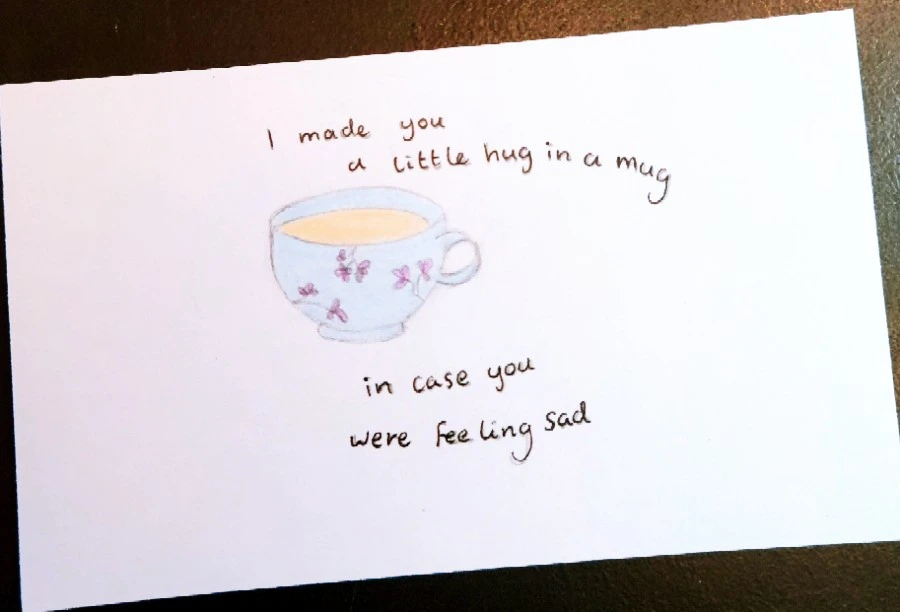 I made you
a little hug in a mug
in case you
were feeling sad